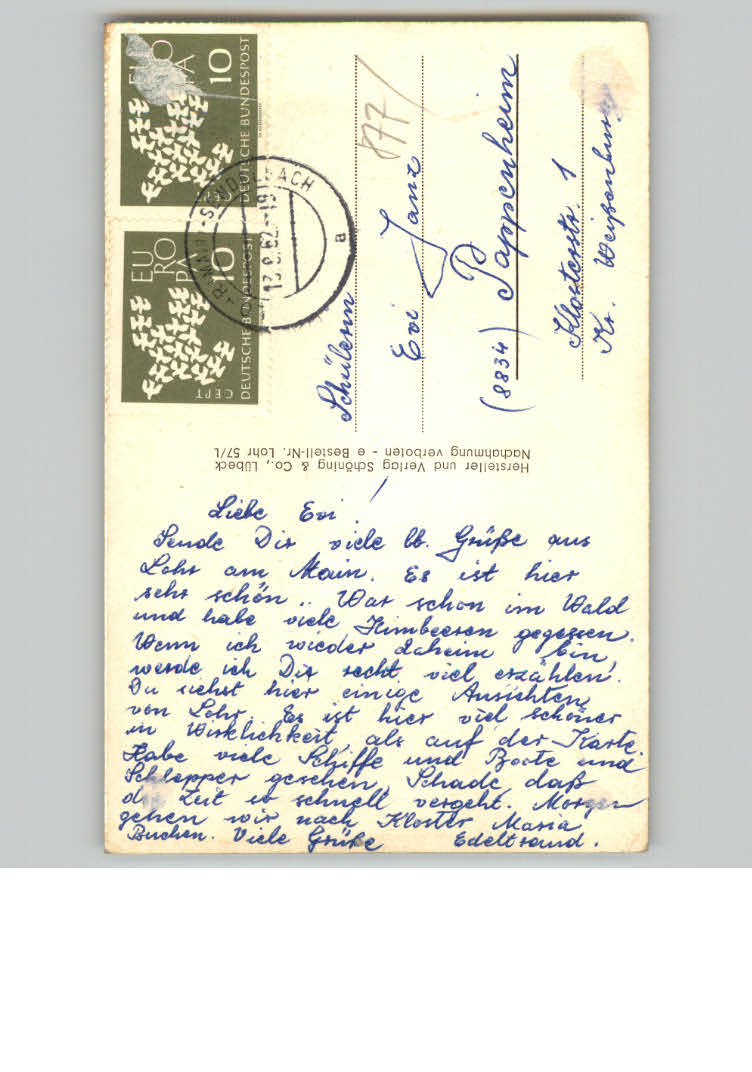 EUROPA
10
DEUTSCHE BUNDESPOST
EU
RO
PA
10
DEUTSCHE BUNDESPOST
CEPT
-SENDELBACH
13.8.62.-19
a
877/
Schülerin
Evi Janz
(8834) Pappenheim
Klosterstr. 1
Kr. Weißenburg
Hersteller und Verlag Schöning & Co., Lübeck
Nachahmung verboten - e Bestell-Nr. Lohr 57/L
Liebe Evi!
Sende Dir viele lb. Grüße aus
Lohr am Main. Es ist hier
sehr schön.. War schon im Wald
und habe viele Himbeeren gegessen.
Wenn ich wieder daheim bin,
werde ich Dir recht viel erzählen!
Du siehst hier einige Ansichten
von Lohr. Es ist hier viel schöner
in Wirklichkeit, als auf der Karte.
Habe viele Schiffe und Boote und
Schlepper gesehen. Schade, daß
die Zeit so schnell vergeht. Morgen
gehen wir nach Kloster Maria
Buchen. Viele Grüße Edeltraud.